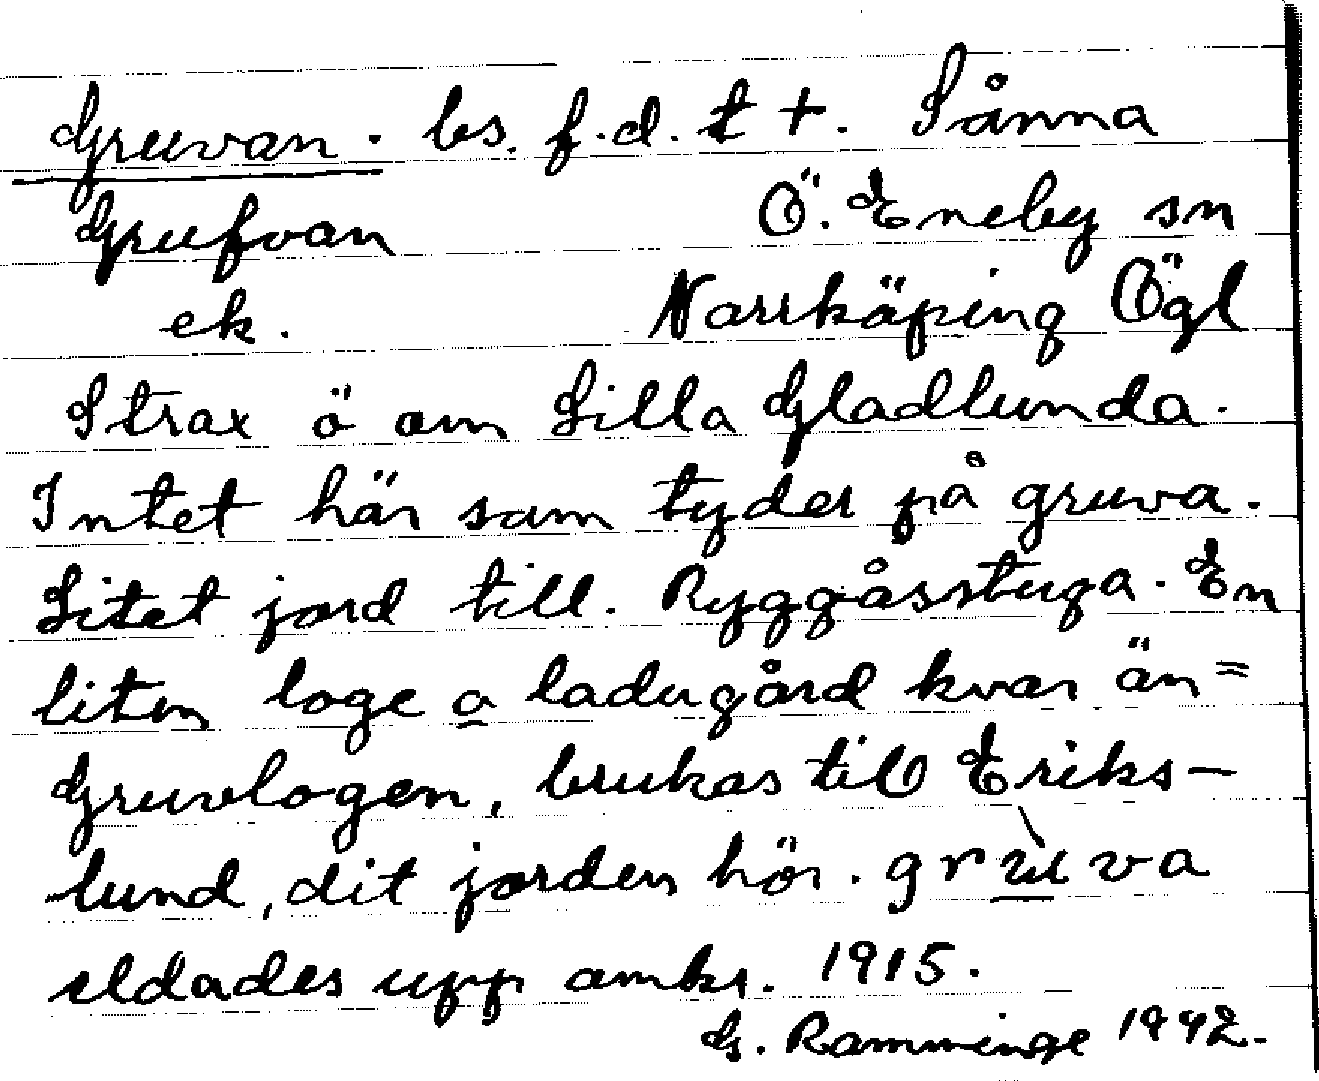 Gruvan. bs. f.d. t +. Sånna
Grufvan Ö. Eneby sn
ek. Norrköping Ögl
Strax ö om Lilla Gladlunda.
Intet här som tyder på gruva.
Litet jord till. Ryggåsstuga. En
liten loge o ladugård kvar än =
Gruvlogen, brukas till Eriks-
lund, dit jorden hör. gru̇̀va
eldades upp omkr. 1915.
G. Ramminge 1942.